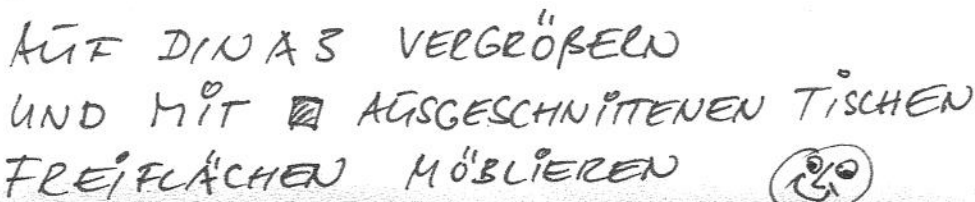 AUF DIN A3 VERGRÖßERN
UND MIT AUSGESCHNITTENEN TISCHEN
FREIFLÄCHEN MÖBLIEREN